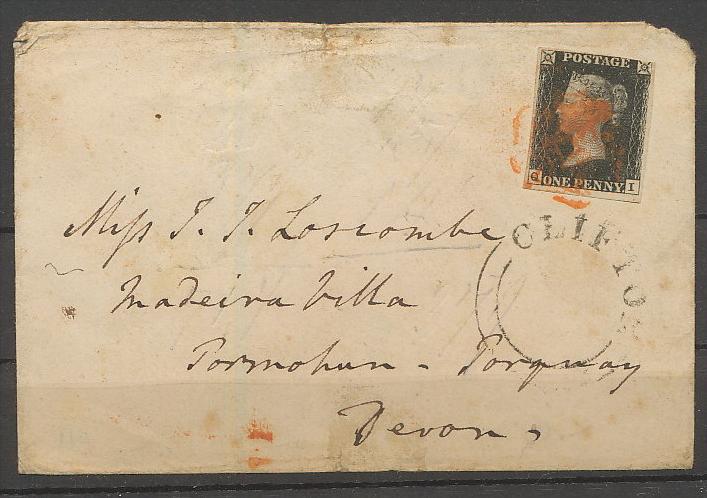 POSTAGE
ONE PENNY
I
CLIFTON
Miss J. J. Loscombe
Madeira Villa
Tormohun - Torquay
Devon.